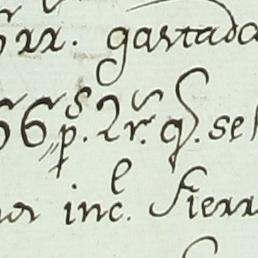 rr. gastada
66 p.s 2 r.s q. se
inc.l fierr